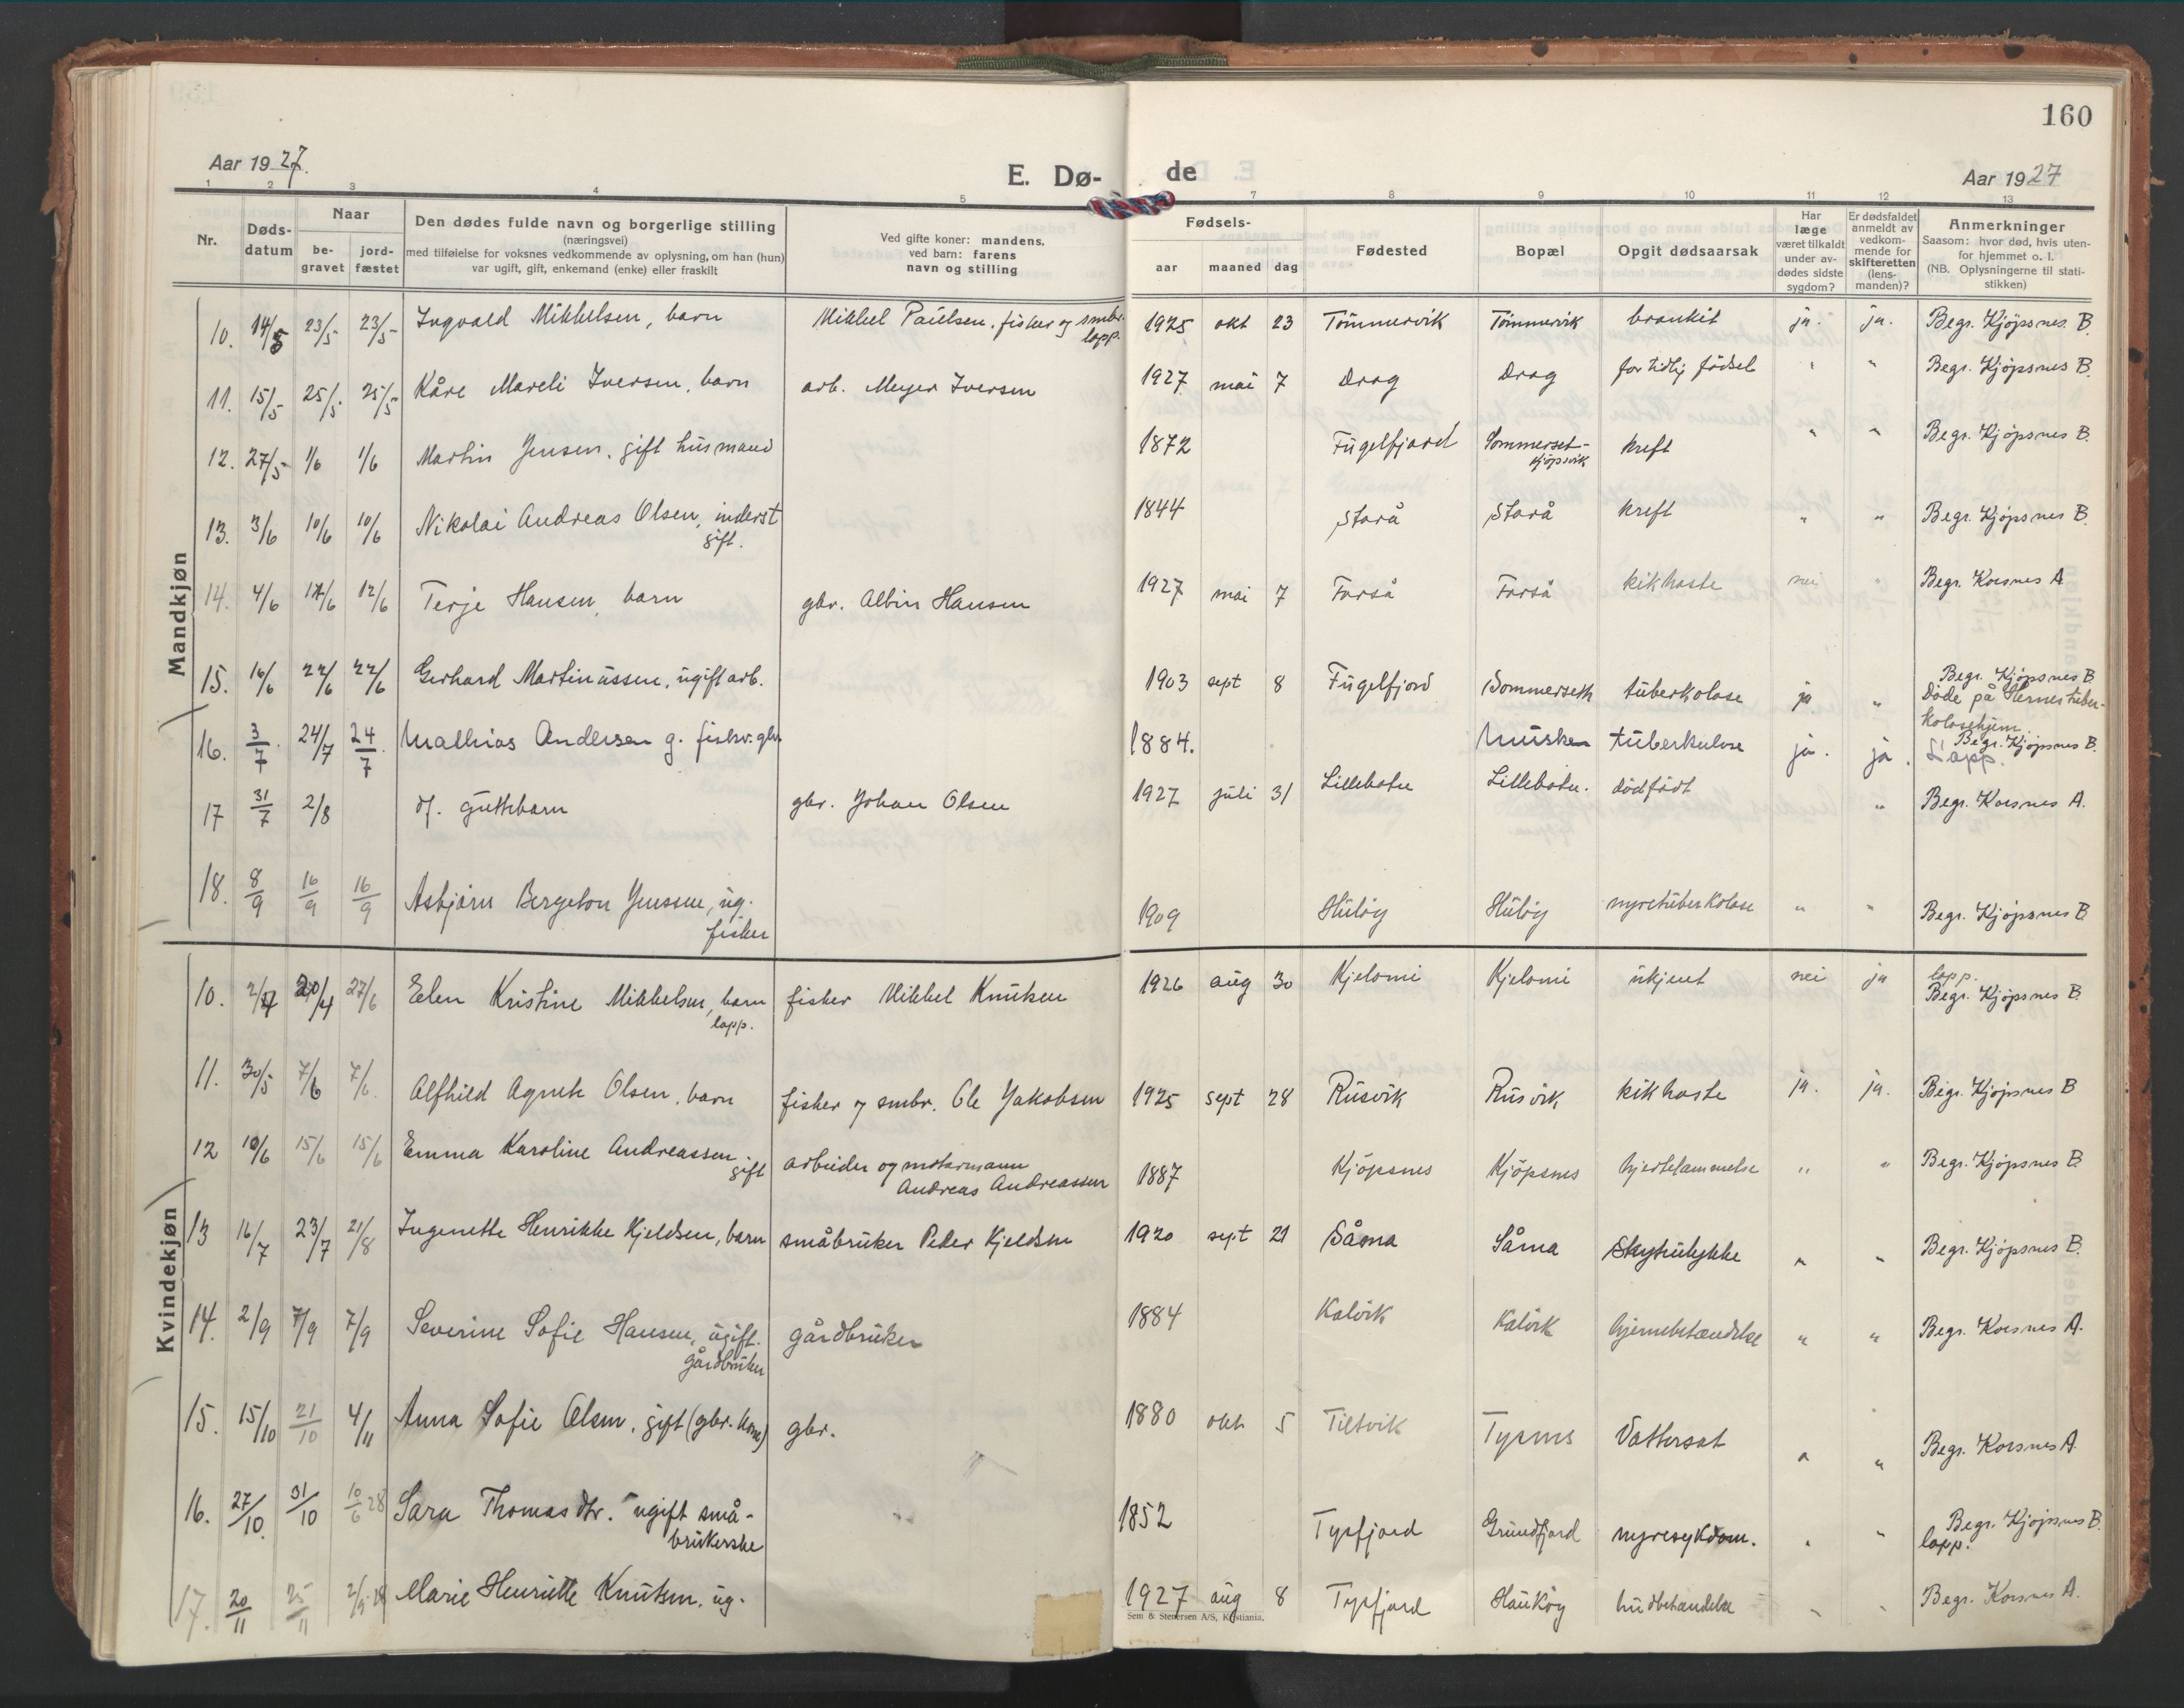 160
Aar 1927.
E. Dø-
de
Aar 1927
1 2 3 4 5 7 8 9 10 11 12 13
Nr.
Døds-
datum
Naar
be-
gravet
jord-
fæstet
Den dødes fulde navn og borgerlige stilling
(næringsvei)
med tilføielse for voksnes vedkommende av oplysning, om han (hun)
var ugift, gift, enkemand (enke) eller fraskilt
Ved gifte koner: mandens,
ved barn: farens
navn og stilling
Fødsels-
aar maaned dag
Fødested
Bopæl
Opgit dødsaarsak
Har
læge
været tilkaldt
under av-
dødes sidste
sygdom?
Er dødsfaldet
anmeldt av
vedkom-
mende for
skifteretten
(lens-
manden)?
Anmerkninger
Saasom: hvor død, hvis uten-
for hjemmet o. l.
(NB. Oplysningerne til stati-
stikken)
Mandkjøn
10. 14/5 23/5 23/5 Ingvald Mikkelsen, barn Mikkel Paulsen, fisker og smbr. lapp. 1925 okt 23 Tömmervik Tömmervik bronkit ja. ja. Begr. Kjöpsnes. B.
11. 15/5 25/5 25/5 Kåre Mareli Iversen, barn arb. Meyer Iversen 1927 mai 7 Drag Drag for tidlig födsel " " Begr. Kjöpsnes B.
12. 27/5 1/6 1/6 Martin Jensen, gift husmand 1872 Fuglfjord Sommerset-
Kjöpsvik kreft " " Begr. Kjöpsnes B.
13. 3/6 10/6 10/6 Nikolai Andreas Olsen, inderst
gift. 1844 Storå Storå kreft " " Begr. Kjöpsnes B.
14. 4/6 12/6 12/6 Terje Hansen, barn gbr. Albin Hansen 1927 mai 7 Forså Forså kikhoste nei " Begr. Korsnes A
15. 16/6 22/6 22/6 Gerhard Martinussen, ugift arb. 1903 sept 8 Fuglfjord Sommerseth tuberkolose ja " Begr. Kjöpsnes B
Döde på Hernes tuber-
kolosehjem.
16. 3/7 24/7 24/7 Mathias Andersen g. fisker. gbr. 1884. Musken tuberkulose ja. ja. Begr. Kjöpsnes B.
Lapp.
17 31/7 2/8 df. guttebarn gbr. Johan Olsen 1927 juli 31 Lillebotn Lillebotn. dödfödt " Begr. Korsnes A.
18. 8/9 16/9 16/9 Asbjörn Bergeton Jenssen, ug.
fisker 1909 Hulöy Hulöy nyretuberkolose " " Begr. Kjöpsnes B
Kvindekjøn
10. 2/4 20/4 27/6 Elen Kristine Mikkelsen, barn
lapp. fisker Mikkel Knutsen 1926 aug 30 Kjelomi Kjelomi ukjent nei ja lapp.
Begr. Kjöpsnes B.
11. 30/5 7/6 7/6. Alfhild Agnete Olsen, barn fisker og smbr. Ole Jakobsen 1925 sept 28 Rusvik Rusvik kikhoste ja. ja. Begr. Kjöpsnes B
12 10/6 15/6 15/6 Emma Karoline Andreassen
gift arbeider og motormann
Andreas Andreassen 1887 Kjöpsnes Kjöpsnes hjertelammelse " " Begr. Kjöpsnes B.
13 16/7 23/7 21/8 Ingenette Henrikke Kjeldsen, barn småbruker Peder Kjeldsen 1920 sept 21 Såma Såma Skytulykke " " Begr. Kjöpsnes B.
14. 2/9 7/9 7/9 Severine Sofie Hansen, ugift.
gårdbruker gårdbruker 1884 Kalvik Kalvik hjernebetændelse " " Begr. Korsnes A.
15. 15/10 21/10 4/11 Anna Sofie Olsen, gift (gbr. kone) gbr. 1880 okt 5 Tiltvik Tysnes Vattersot " " Begr. Korsnes A.
16. 27/10. 31/10 10/6 28 Sara Thomasdtr. ugift små-
brukerske 1852 Tysfjord Grundfjord nyresykdom. " " Begr. Kjöpsnes B.
lapp.
17. 20/11 25/11 Marie Henriette Knutsen, ug. 1927 aug 8 Tysfjord Haukøy hudbetændelse " " Begr. Korsnes A.
Sem & Stenersen A/S, Kristiania.